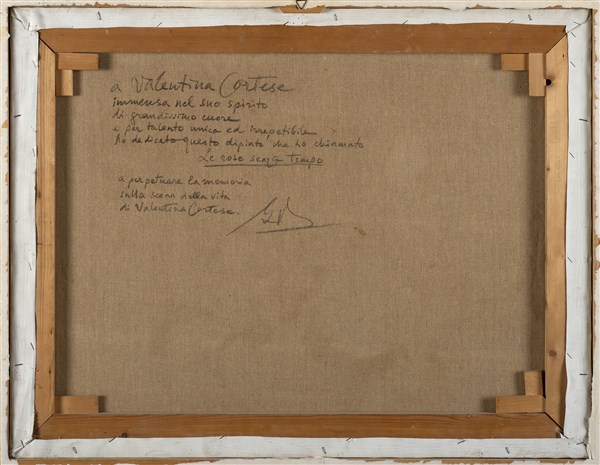 a Valentina Cortese
immensa nel suo spirito
di grandissimo cuore
e per talento unica ed irrepetibile
ho dedicato questo dipinto che ho chiamato
Le cose senza Tempo
a perpetuare la memoria
sulla scena della vita
di Valentina Cortese.